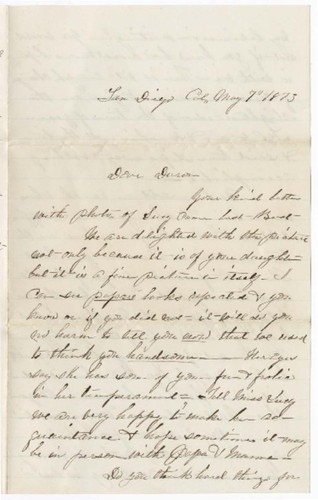 San Diego Cal, May 1st 1873
Dear Duron
Your kind letter
with photo of Lucy came last Boat -
We are delighted with the picture
not only because it is of your daughter
but it is a fine picture in itself - I
can see papas looks repeated & you
know or if you did not - it will do you
no harm to tell you now that we used
to think you handsome - Her eyes
say she has some of your fun & frolic
in her temperament - Tell Miss Lucy
we are very happy to make her ac-
quaintance & hope sometime it may
be in person with Papa & Mamma -
Do you think hard things for